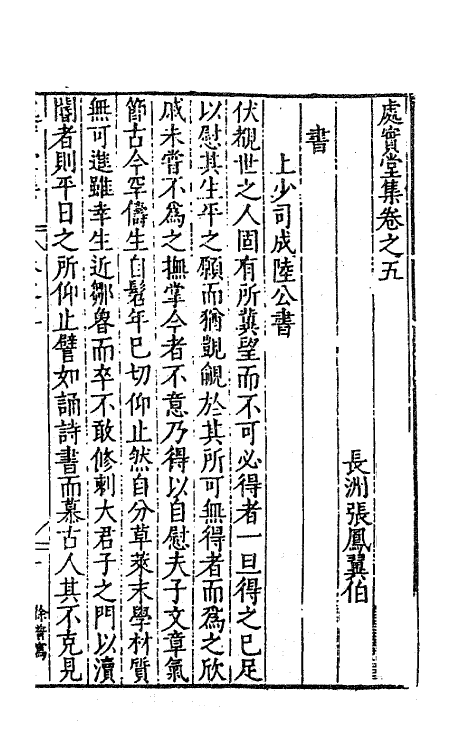 處實堂集卷之五
長洲張鳳翼伯
書
上少司成陸公書
伏覩世之人固有所冀望而不可必得者一旦得之已足
以慰其生平之願而猶覬覦於其所可無得者而爲之欣
戚未嘗不爲之撫掌今者不意乃得以自慰夫子文章氣
節古今罕儔生自髫年已切仰止然自分草萊末學材質
無可進雖幸生近鄒魯而卒不敢修刺大君子之門以瀆
閽者則平日之所仰止譬如誦詩書而慕古人其不克見
徐普寫